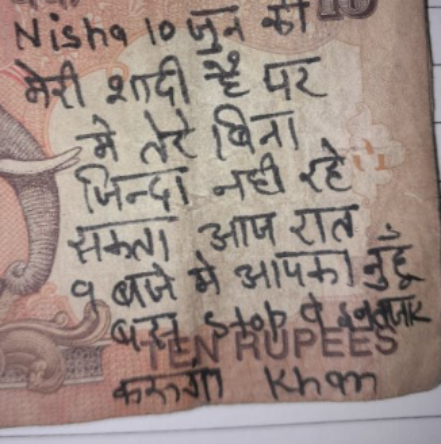 10
Nisha 10 जुन को
मेरी शादी है पर
मे तेरे बिना
जिन्दा नही रहे
सकता आज रात
9 बजे मे आपका नुहूँ
बस stop पे इनतजार
TEN RUPEES
करूगा Kham